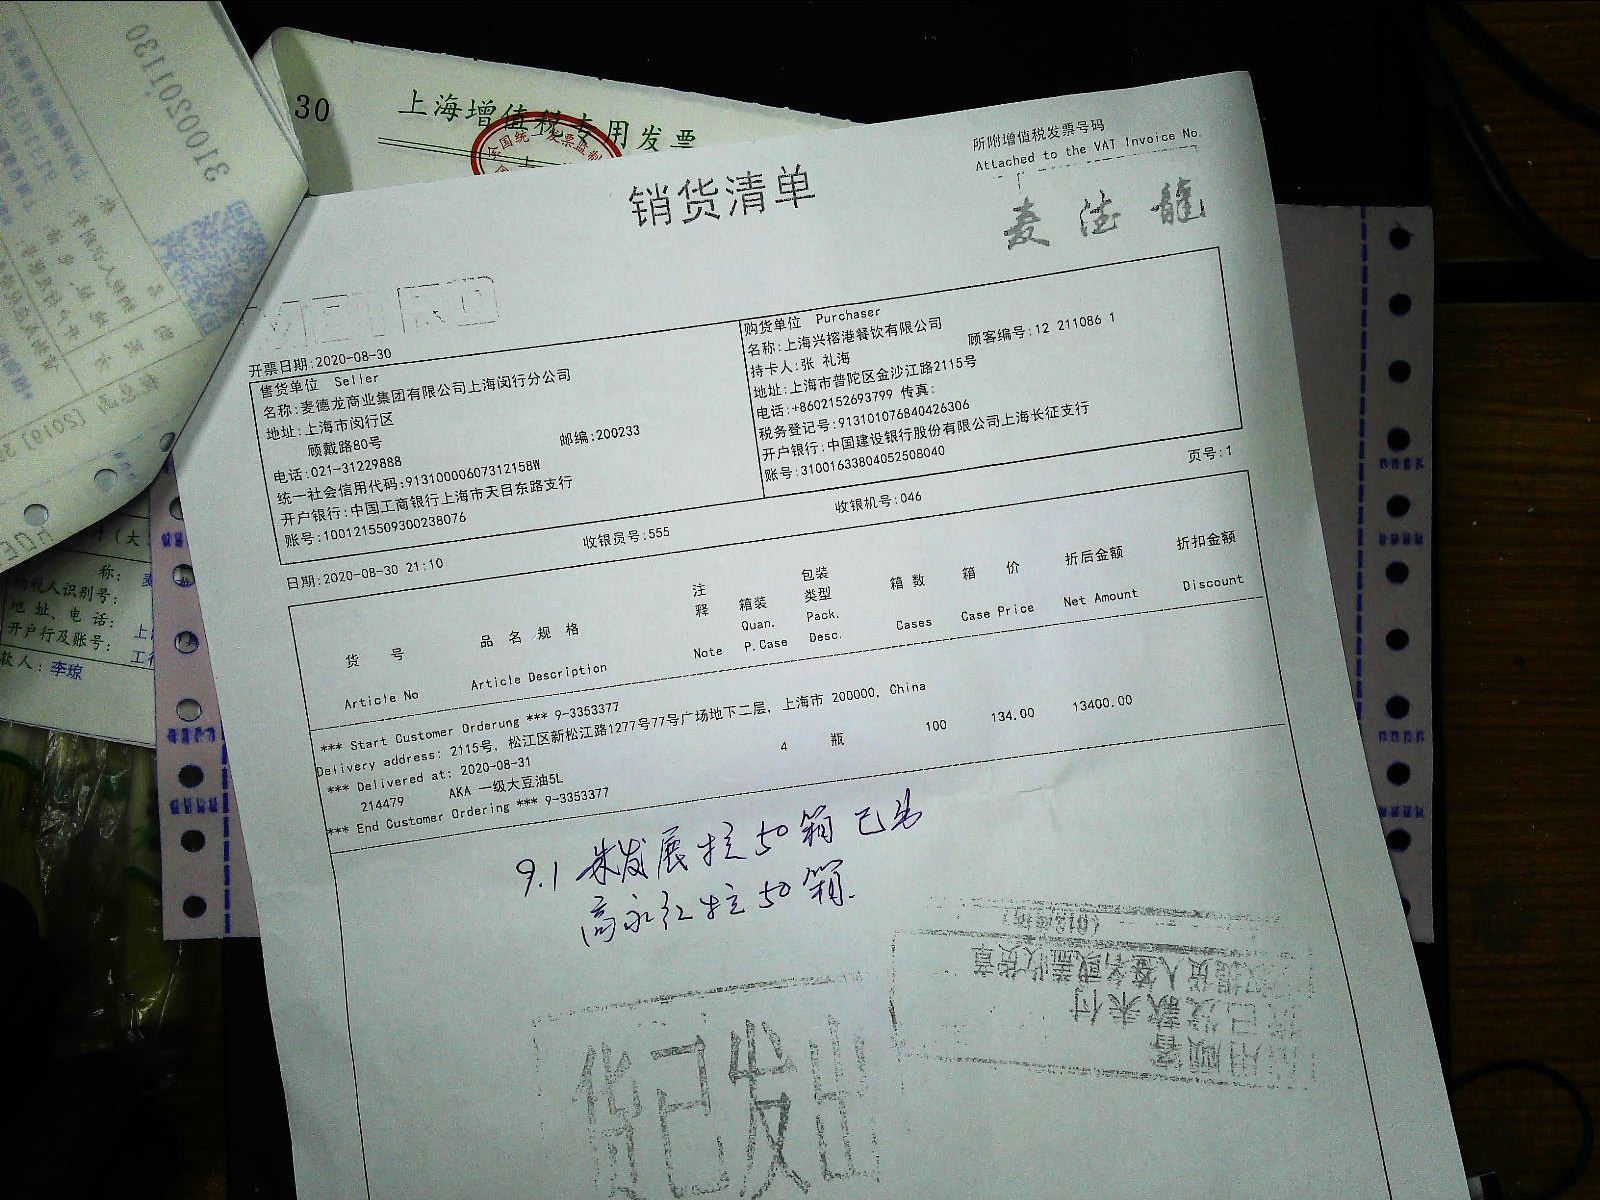 31000201130
30
上海增值税专用发票
销货清单
所附增值税发票号码
Attached to the VAT Invoice No.
麦德龍
METRO
开票日期:2020-08-30
售货单位 Seller
名称:麦德龙商业集团有限公司上海闵行分公司
地址:上海市闵行区
顾戴路80号
邮编:200233
电话:021-31229888
统一社会信用代码:91310000607312158W
开户银行:中国工商银行上海市天目东路支行
账号:1001215509300238076
购货单位 Purchaser
名称:上海兴榕港餐饮有限公司
顾客编号:12 211086 1
持卡人:张 礼海
地址:上海市普陀区金沙江路2115号
电话:+8602152693799 传真:
税务登记号:913101076840426306
开户银行:中国建设银行股份有限公司上海长征支行
账号:31001633804052508040
页号:1
日期:2020-08-30 21:10
收银员号:555
收银机号:046
货 号 品 名 规 格 注释 箱装 包装类型 箱 数 箱 价 折后金额 折扣金额
Article No Article Description Note Quan. P.Case Pack. Desc. Cases Case Price Net Amount Discount
*** Start Customer Orderung *** 9-3353377
Delivery address: 2115号, 松江区新松江路1277号77号广场地下二层, 上海市 200000, China
*** Delivered at: 2020-08-31
214479 AKA 一级大豆油5L 4 瓶 100 134.00 13400.00
*** End Customer Ordering *** 9-3353377
9.1 朱发展拉50箱已出
高永红拉50箱.
货已发出
信用顾客
货已发款未付
收货人签名或盖收货章
称:
纳税人识别号:
地 址、电 话:
开户行及账号:
款人:李琼